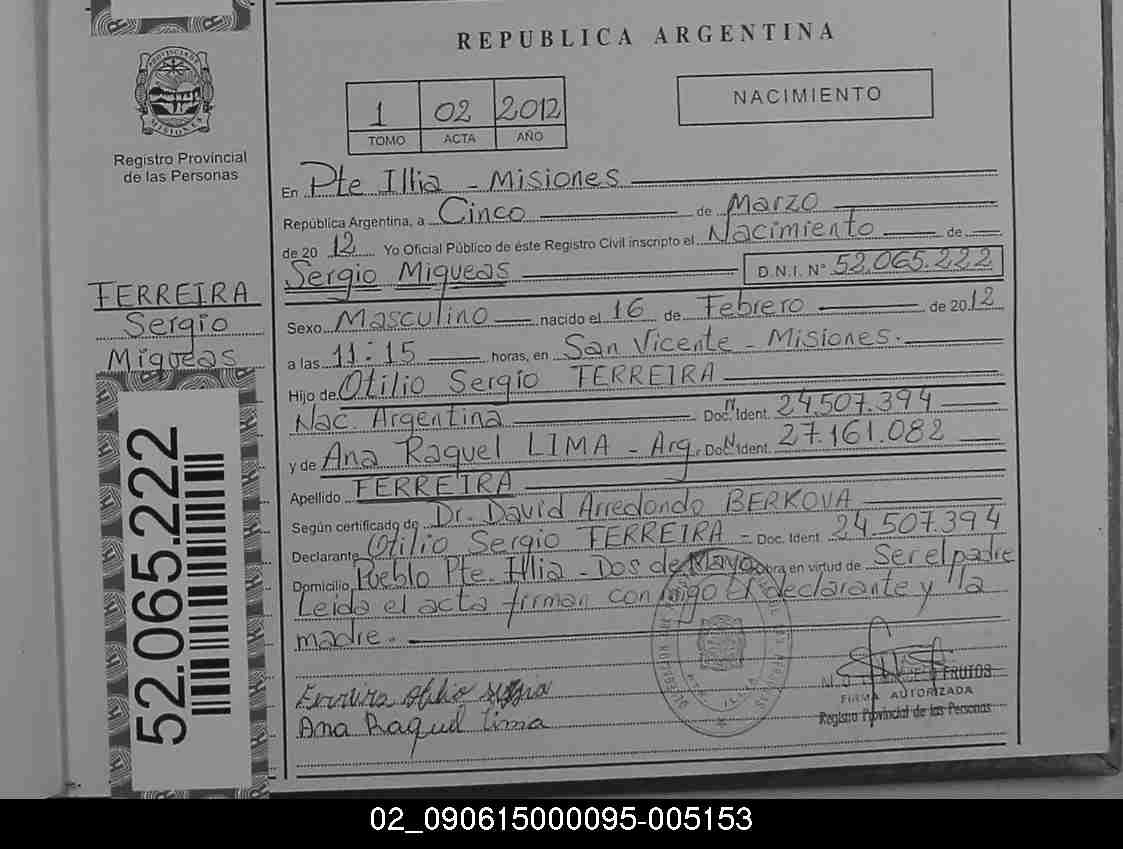 REPUBLICA ARGENTINA
PROVINCIA DE
MISIONES
Registro Provincial
de las Personas
1 02 2012
TOMO ACTA AÑO
NACIMIENTO
En Pte Illia - Misiones
República Argentina, a Cinco de Marzo
de 20 12 Yo Oficial Público de éste Registro Civil inscripto el Nacimiento de
Sergio Miqueas D.N.I. N° 52.065.222
FERREIRA
Sergio
Miqueas
Sexo Masculino nacido el 16 de Febrero de 2012
a las 11:15 horas, en San Vicente - Misiones.
Hijo de Otilio Sergio FERREIRA
Nac. Argentina Doc. Ident. 24.507.394
y de Ana Raquel LIMA - Arg. Doc. Ident. 27.161.082
Apellido FERREIRA
Según certificado de Dr. David Arredondo BERKOVA
Declarante Otilio Sergio FERREIRA - Doc. Ident. 24.507.394
Domicilio Pueblo Pte. Illia - Dos de Mayo obra en virtud de Ser el padre
Leida el acta firman conmigo El declarante y la
madre.
52.065.222
Ferreira Otilio Sergio
Ana Raquel Lima
FRUTOS
FIRMA AUTORIZADA
Registro Provincial de las Personas
02_090615000095-005153